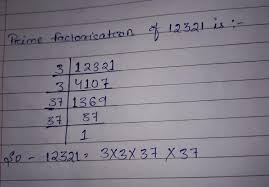 Prime factorisation of 12321 is :-
3 | 12321
3 | 4107
37 | 1369
37 | 37
1
So - 12321 = 3X3X37 X37